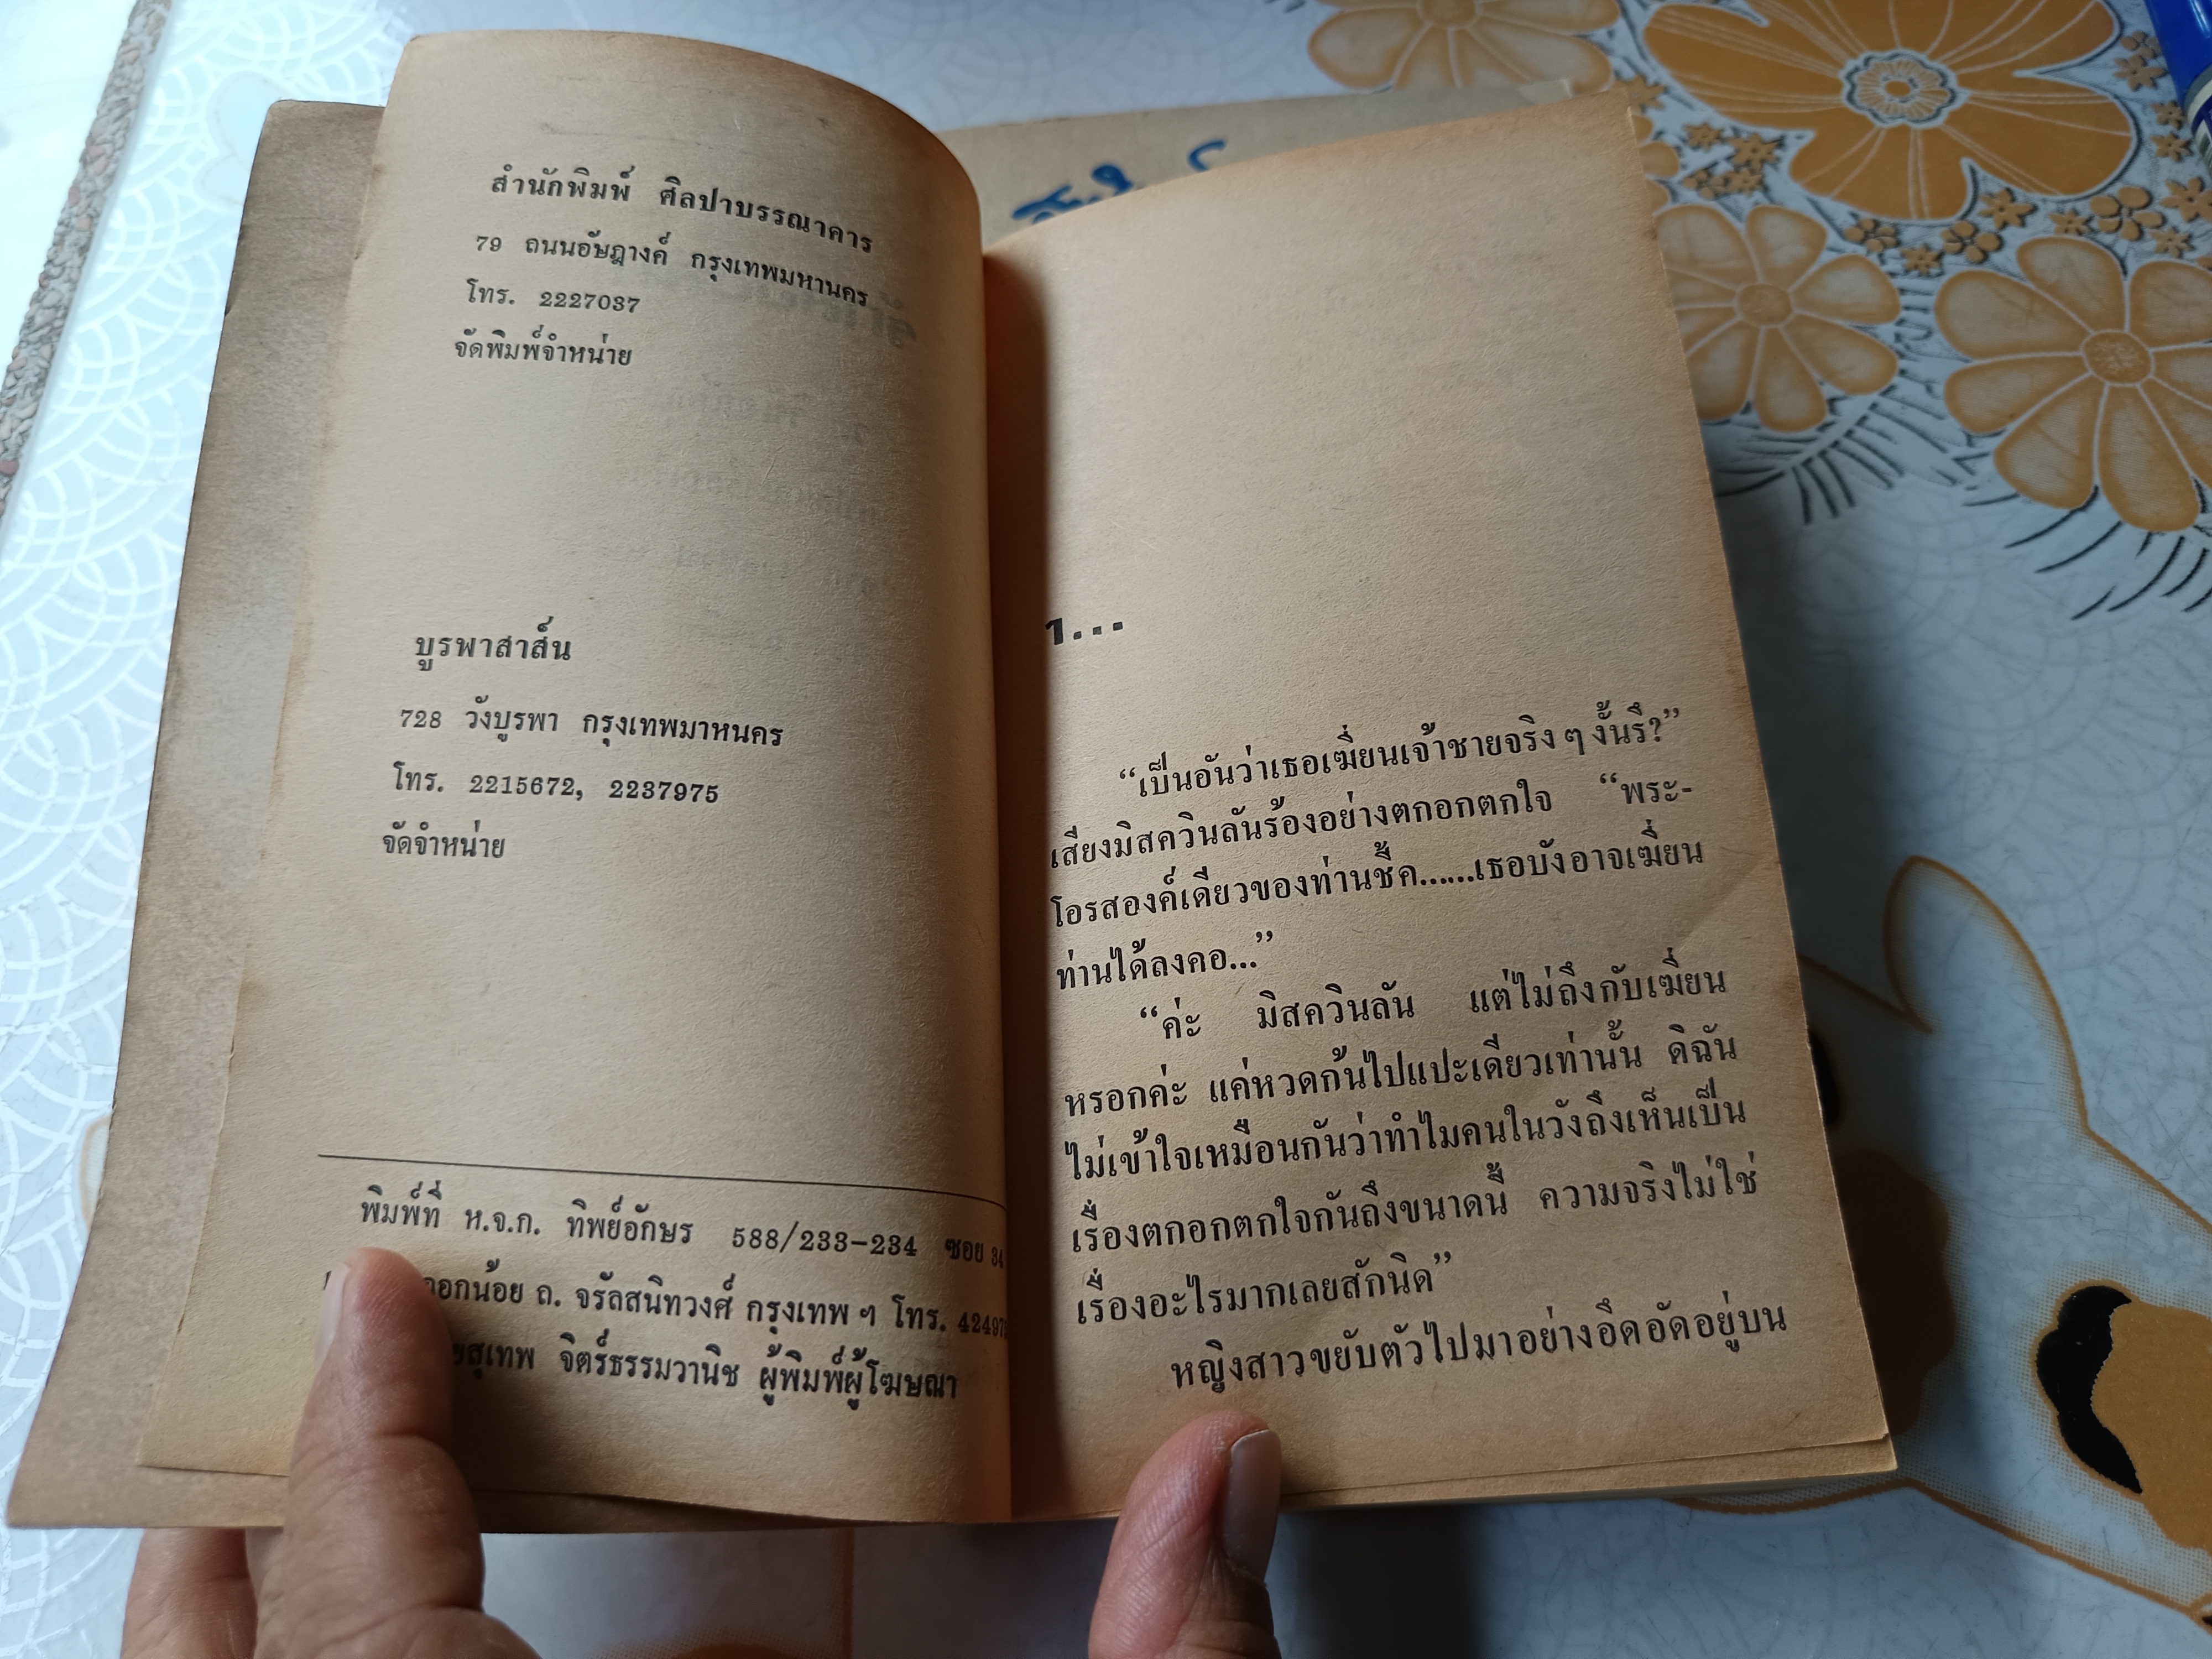 สำนักพิมพ์ ศิลปาบรรณาคาร
79 ถนนอัษฎางค์ กรุงเทพมหานคร
โทร. 2227037
จัดพิมพ์จำหน่าย
บูรพาสาส์น
728 วังบูรพา กรุงเทพมาหนคร
โทร. 2215672, 2237975
จัดจำหน่าย
พิมพ์ที่ ห.จ.ก. ทิพย์อักษร 588/233-234 ซอย 34
น้อย ถ. จรัลสนิทวงศ์ กรุงเทพ ฯ โทร.
สุเทพ จิตร์ธรรมวานิช ผู้พิมพ์ผู้โฆษณา
1...
“เป็นอันว่าเธอเฆี่ยนเจ้าชายจริง ๆ งั้นรึ?”
เสียงมิสควินลันร้องอย่างตกอกตกใจ “พระ-
โอรสองค์เดียวของท่านชี้ค......เธอบังอาจเฆี่ยน
ท่านได้ลงคอ...”
“ค่ะ มิสควินลัน แต่ไม่ถึงกับเฆี่ยน
หรอกค่ะ แค่หวดก้นไปแปะเดียวเท่านั้น ดิฉัน
ไม่เข้าใจเหมือนกันว่าทำไมคนในวังถึงเห็นเป็น
เรื่องตกอกตกใจกันถึงขนาดนี้ ความจริงไม่ใช่
เรื่องอะไรมากเลยสักนิด”
หญิงสาวขยับตัวไปมาอย่างอึดอัดอยู่บน